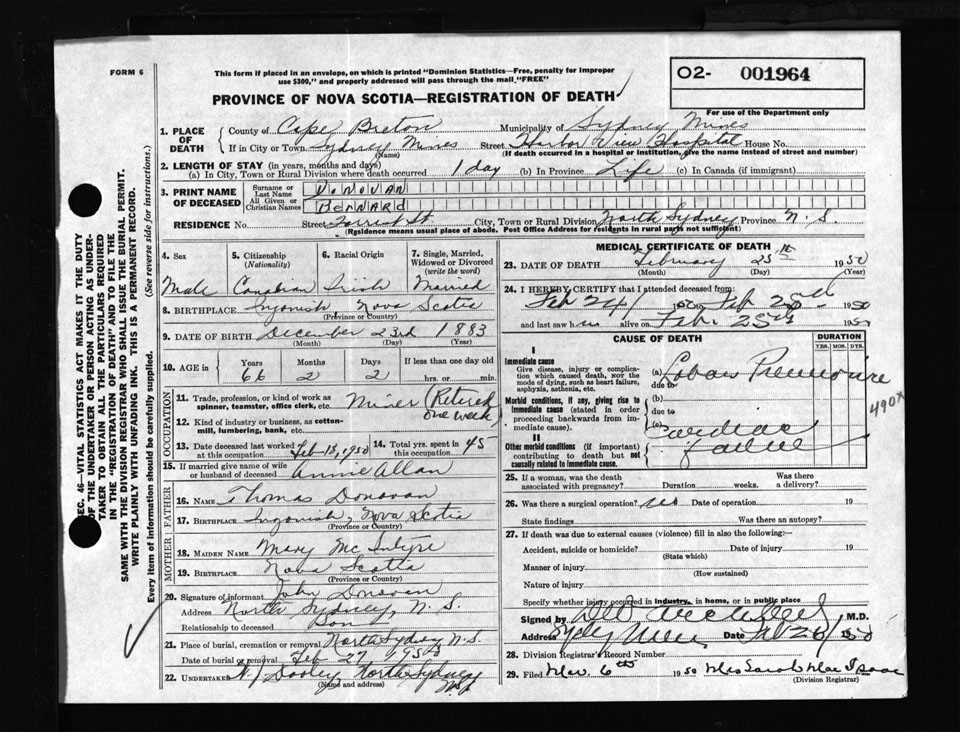 FORM 6
This form if placed in an envelope, on which is printed "Dominion Statistics—Free, penalty for improper
use $300," and properly addressed will pass through the mail "FREE"
O2- 001964
PROVINCE OF NOVA SCOTIA—REGISTRATION OF DEATH
For use of the Department only
1. PLACE OF DEATH
County of Cape Breton Municipality of Sydney Mines
If in City or Town Sydney Mines Street Harbor View Hospital House No.
(Name) (If death occurred in a hospital or institution, give the name instead of street and number)
2. LENGTH OF STAY (in years, months and days)
(a) In City, Town or Rural Division where death occurred 1 day (b) In Province Life (c) In Canada (if immigrant)
3. PRINT NAME OF DECEASED
Surname or Last Name DONOVAN
All Given or Christian Names BERNARD
RESIDENCE No. Street Forrest St. City, Town or Rural Division North Sydney Province N.S.
(Residence means usual place of abode. Post Office Address for residents in rural parts not sufficient)
4. Sex 5. Citizenship (Nationality) 6. Racial Origin 7. Single, Married, Widowed or Divorced (write the word)
Male Canadian Irish Married
8. BIRTHPLACE Ingonish Nova Scotia
(Province or Country)
9. DATE OF BIRTH December 23rd 1883
(Month) (Day) (Year)
10. AGE in Years Months Days If less than one day old
66 2 2 hrs. or min.
OCCUPATION
11. Trade, profession, or kind of work as spinner, teamster, office clerk, etc. Miner (Retered one week)
12. Kind of industry or business, as cotton-mill, lumbering, bank, etc.
13. Date deceased last worked at this occupation Feb 18, 1950 14. Total yrs. spent in this occupation 45
15. If married give name of wife or husband of deceased Annie Allan
FATHER
16. NAME Thomas Donovan
17. BIRTHPLACE Ingonish, Nova Scotia
(Province or Country)
MOTHER
18. MAIDEN NAME Mary Mc Intyre
19. BIRTHPLACE Nova Scotia
(Province or Country)
20. Signature of informant John Donovan
Address North Sydney, N. S.
Relationship to deceased Son
21. Place of burial, cremation or removal North Sydney N.S.
Date of burial or removal Feb 27 1950
22. UNDERTAKER Dooley North Sydney N.S.
(Name and address)
MEDICAL CERTIFICATE OF DEATH
23. DATE OF DEATH February 25th 1950
(Month) (Day) (Year)
24. I HEREBY CERTIFY that I attended deceased from:
Feb 24/ 1950 Feb 1950
and last saw h alive on Feb 25 1950
CAUSE OF DEATH DURATION
YRS. MOS. DYS.
I
Immediate cause
Give disease, injury or complication which caused death, NOT the mode of dying, such as heart failure, asphyxia, asthenia, etc.
(a) Lobar Pneumonia
due to
490X
Morbid conditions, if any, giving rise to immediate cause (stated in order proceeding backwards from immediate cause).
(b)
due to
(c) Cardiac Failure
II
Other morbid conditions (if important) contributing to death but not causally related to immediate cause.
25. If a woman, was the death associated with pregnancy? Duration weeks. Was there a delivery?
26. Was there a surgical operation? no Date of operation 19
State findings Was there an autopsy?
27. If death was due to external causes (violence) fill in also the following:
Accident, suicide or homicide? Date of injury 19
(State which)
Manner of injury
(How sustained)
Nature of injury
Specify whether injury occurred in industry, in home, or in public place
Signed by M.D.
Address Sydney Mines Date 26/ 1950
28. Division Registrar's Record Number
29. Filed Mar. 6th 1950 Mrs Sarah Mac Isaac
(Division Registrar)
SEC. 46 VITAL STATISTICS ACT MAKES IT THE DUTY
OF THE UNDERTAKER OR PERSON ACTING AS UNDER-
TAKER TO OBTAIN ALL THE PARTICULARS REQUIRED
IN THE "REGISTRATION OF DEATH" AND TO FILE THE
SAME WITH THE DIVISION REGISTRAR WHO SHALL ISSUE THE BURIAL PERMIT.
WRITE PLAINLY WITH UNFADING INK. THIS IS A PERMANENT RECORD.
Every item of information should be carefully supplied. (See reverse side for instructions.)